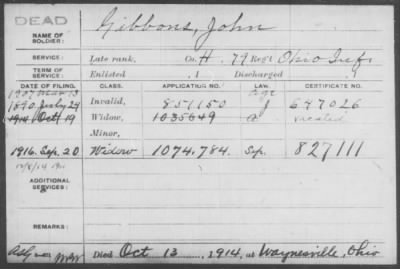 DEAD
Gibbons, John
NAME OF
SOLDIER:
SERVICE: Late rank, Co. H. 79 Reg't Ohio Inf.
TERM OF
SERVICE: Enlisted , 1 Discharged , 1
DATE OF FILING. CLASS. APPLICATION NO. LAW. CERTIFICATE NO.
1907 Mar 13 Age
1890 July 29 Invalid, 851150 J 647026
1914 Oct 19 Widow, 1035649 a vacated
Minor,
1916. Sep. 20 Widow 1074.784. Sep. 827111
ADDITIONAL
SERVICES:
REMARKS:
Died Oct 13, 1914, at Waynesville, Ohio